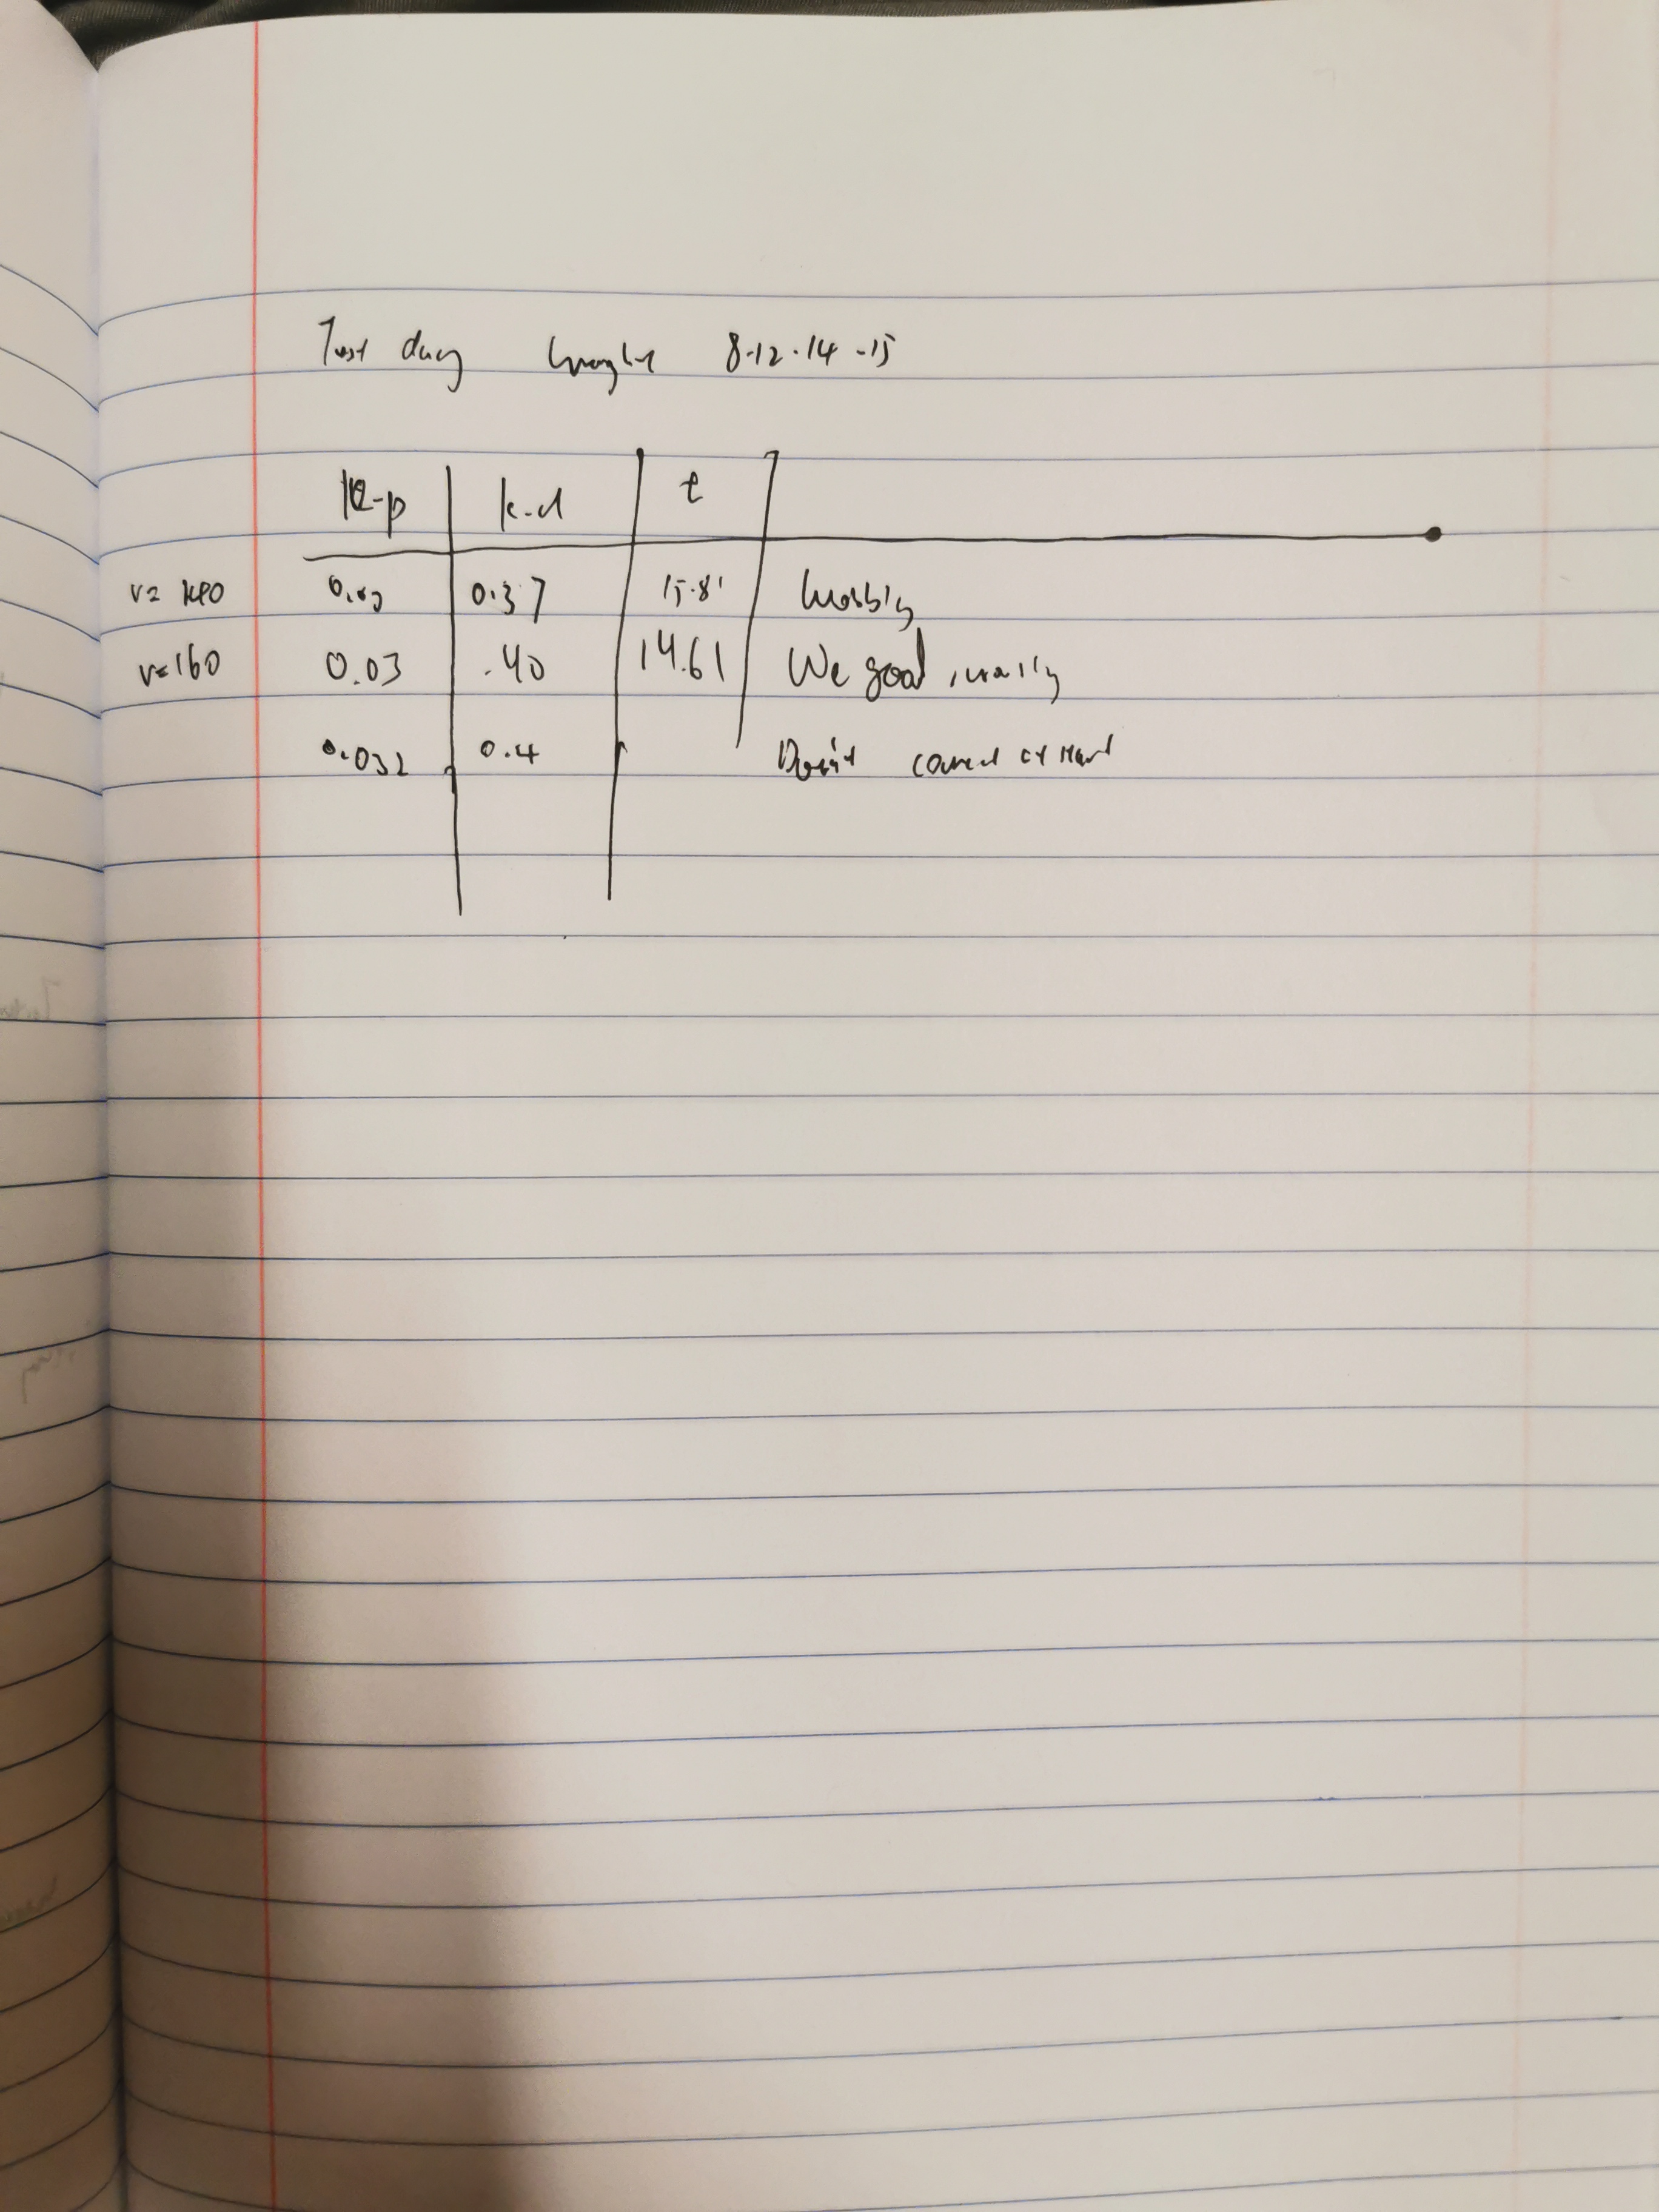 Test day weight 8-12-14-15
K-p k-d t
v= 140 0.03 0.37 15.81 Wobbly
v=160 0.03 .40 14.61 We good, wobbly
0.032 0.4 Doesn't correct at start